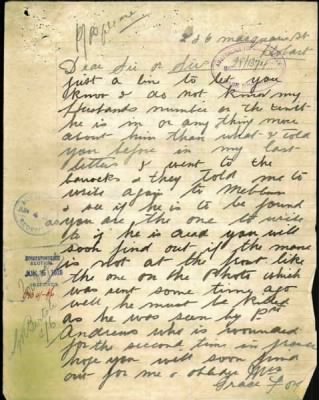 236 Macquarie St
Hobart
Dear Sir or Sirs
just a line to let you
know I do not know my
Husbands number or the unit
he is in or any thing more
about him than what I told
you before in my last
letter I went to the
barracks & they told me to
write again to Melbourne
& see if he is to be found
as you are the one to write
to if he is dead you will
soon find out if the name
is not at the front like
the one on the Photo which
was sent some time ago
well he must be killed
as he was seen by Pte
Andrews who is wounded
for the second time in france
hope you will soon find
out for me & oblige Mrs
Grace Fox
CORRESPONDENCE
SECTION
JUN 15 1918